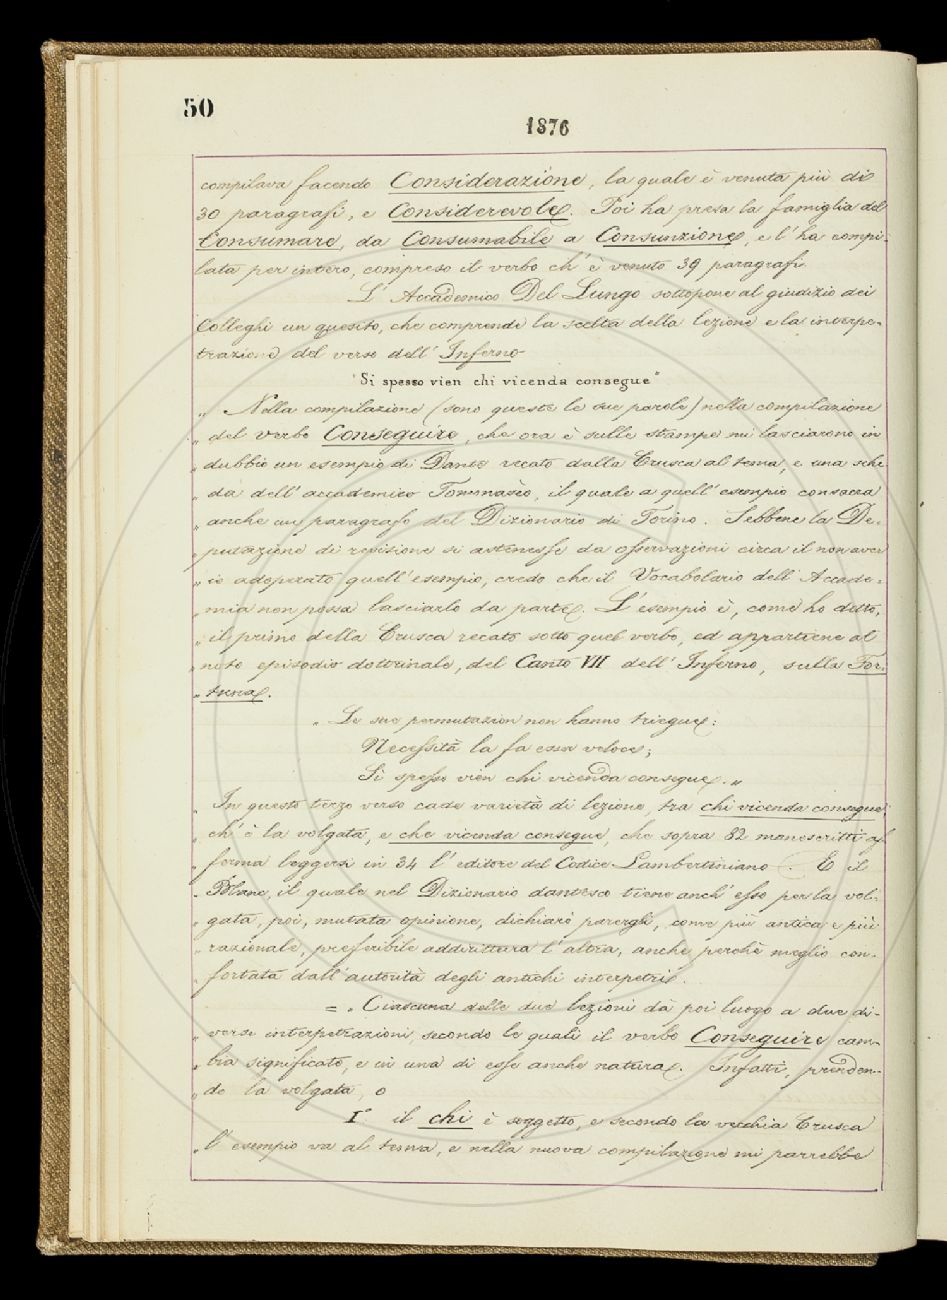 50
1876
compilava facendo Considerazione, la quale è venuta più di
30 paragrafi, e Considerevole. Poi ha presa la famiglia del
Consumare, da Consumabile a Consunzione, e l'ha compi-
lata per intero, compreso il verbo ch'è venuto 39 paragrafi.
L'Accademico Del Lungo sottopone al giudizio dei
Colleghi un quesito, che comprende la scelta della lezione e la interpe-
trazione del verso dell'Inferno
"Si spesso vien chi vicenda consegue"
„ Nella compilazione (sono queste le sue parole) nella compilazione
„ del verbo Conseguire, che ora è sulle stampe mi lasciarono in
„ dubbio un esempio di Dante recato dalla Crusca al tema, e una sche
„ da dell'accademico Tommasèo, il quale a quell'esempio consacra
„ anche un paragrafo del Dizionario di Torino. Sebbene la De-
„ putazione di revisione si astenesse da osservazioni circa il non aver
„ io adoperato quell'esempio, credo che il Vocabolario dell'Accade-
„ mia non possa lasciarlo da parte. L'esempio è, come ho detto,
„ il primo della Crusca recato sotto quel verbo, ed appartiene al
„ noto episodio dottrinale, del Canto VII dell'Inferno, sulla For-
„ tuna.
„ Le sue permutazion non hanno triegue:
Necessità la fa esser veloce;
Sì spesso vien chi vicenda consegue. „
„ In questo terzo verso cade varietà di lezione, tra chi vicenda consegue,
„ ch'è la volgata, e che vicenda consegue, che sopra 82 manoscritti af
„ ferma leggersi in 34 l'editore del Codice Lambertiniano. E il
„ Blanc, il quale nel Dizionario dantesco tiene anch'esso per la vol-
„ gata, poi, mutata opinione, dichiarò parergli, come più antica e più
„ razionale, preferibile addirittura l'altra, anche perchè meglio con-
„ fortata dall'autorità degli antichi interpetri.
= „ Ciascuna delle due lezioni dà poi luogo a due di-
„ verse interpetrazioni, secondo le quali il verbo Conseguire cam-
„ bia significato, e in una di esse anche natura. Infatti, prenden-
„ do la volgata, o
I° il chi è soggetto, e secondo la vecchia Crusca
„ l'esempio va al tema, e nella nuova compilazione mi parrebbe